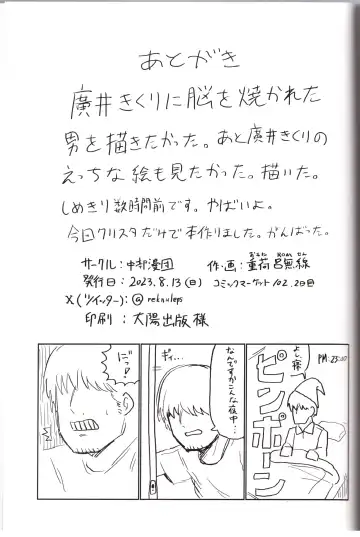 あとがき
廣井きくりに脳を焼かれた
男を描きたかった。あと廣井きくりの
えっちな絵も見たかった。描いた。
しめきり数時間前です。やばいよ。
今回クリスタだけで本作りました。がんばった。
サークル:中却漫団
作・画:重荷呂無線
発行日:2023.8.13(日)
コミックマーケット102.2日目
X(ツイッター):@reknuleps
印刷:太陽出版様
PM:25:00
よし、寝
ピンポーン
ギィ…
なんですかこんな夜中…
に゛っ!